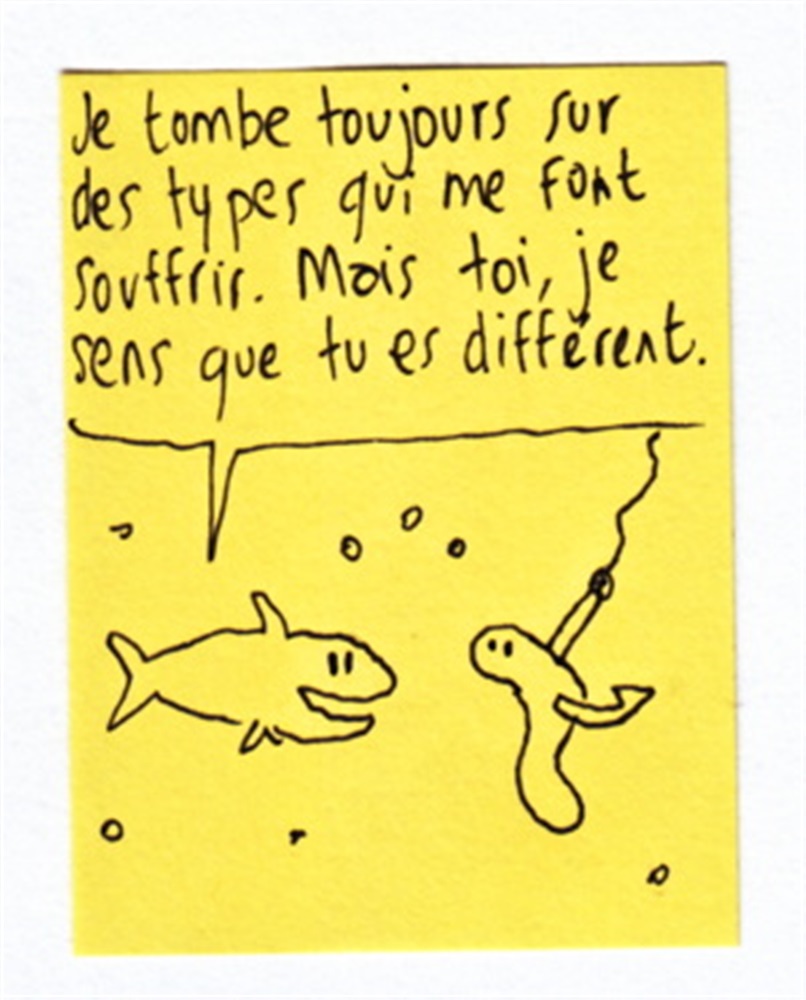 Je tombe toujours sur
des types qui me font
souffrir. Mais toi, je
sens que tu es différent.